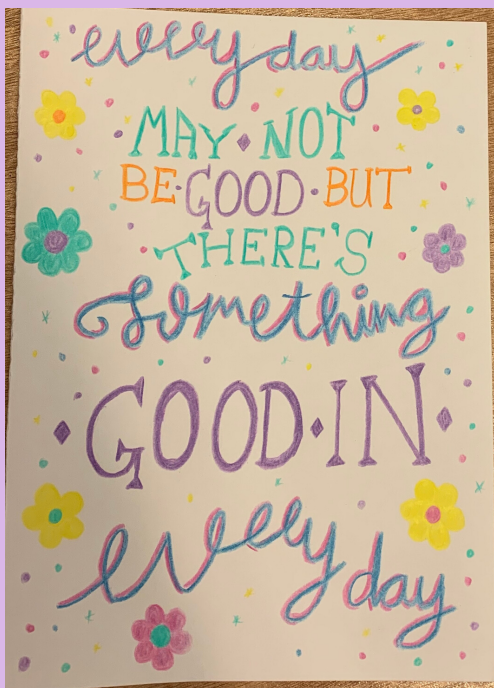 every day
MAY • NOT
BE • GOOD • BUT
THERE'S
Something
• GOOD • IN •
every day